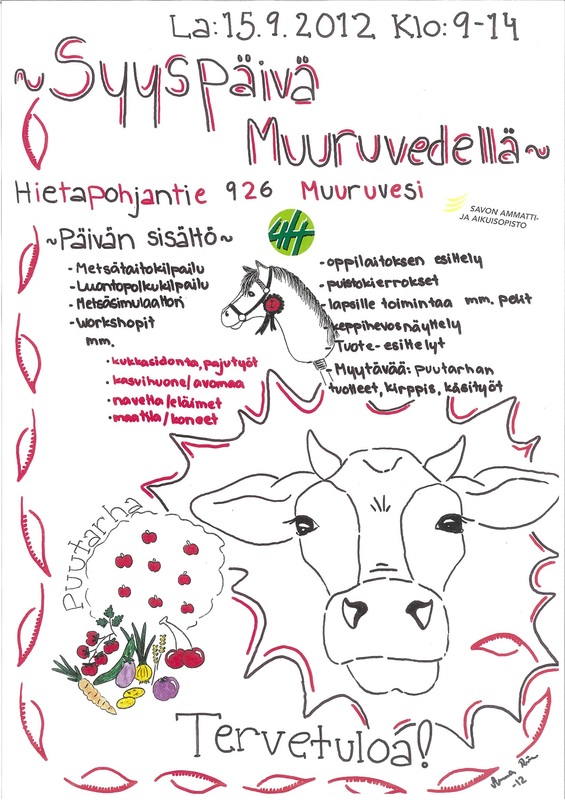 La: 15.9.2012 Klo: 9-14
~Syyspäivä
Muuruvedellä~
Hietapohjantie 926 Muuruvesi
SAVON AMMATTI-
JA AIKUISOPISTO
~Päivän sisältö~
- Metsätaitokilpailu
- Luontopolkukilpailu
- Metsäsimulaattori
- Workshopit
mm.
• kukkasidonta, pajutyöt
• kasvihuone/avomaa
• navetta/eläimet
• maatila/koneet
- oppilaitoksen esittely
- puistokierrokset
- lapsille toimintaa mm. pelit
keppihevosnäyttely
- Tuote-esittelyt
- Myytävää: puutarhan
tuotteet, kirppis, käsityöt
Puutarha
Tervetuloa!
-12